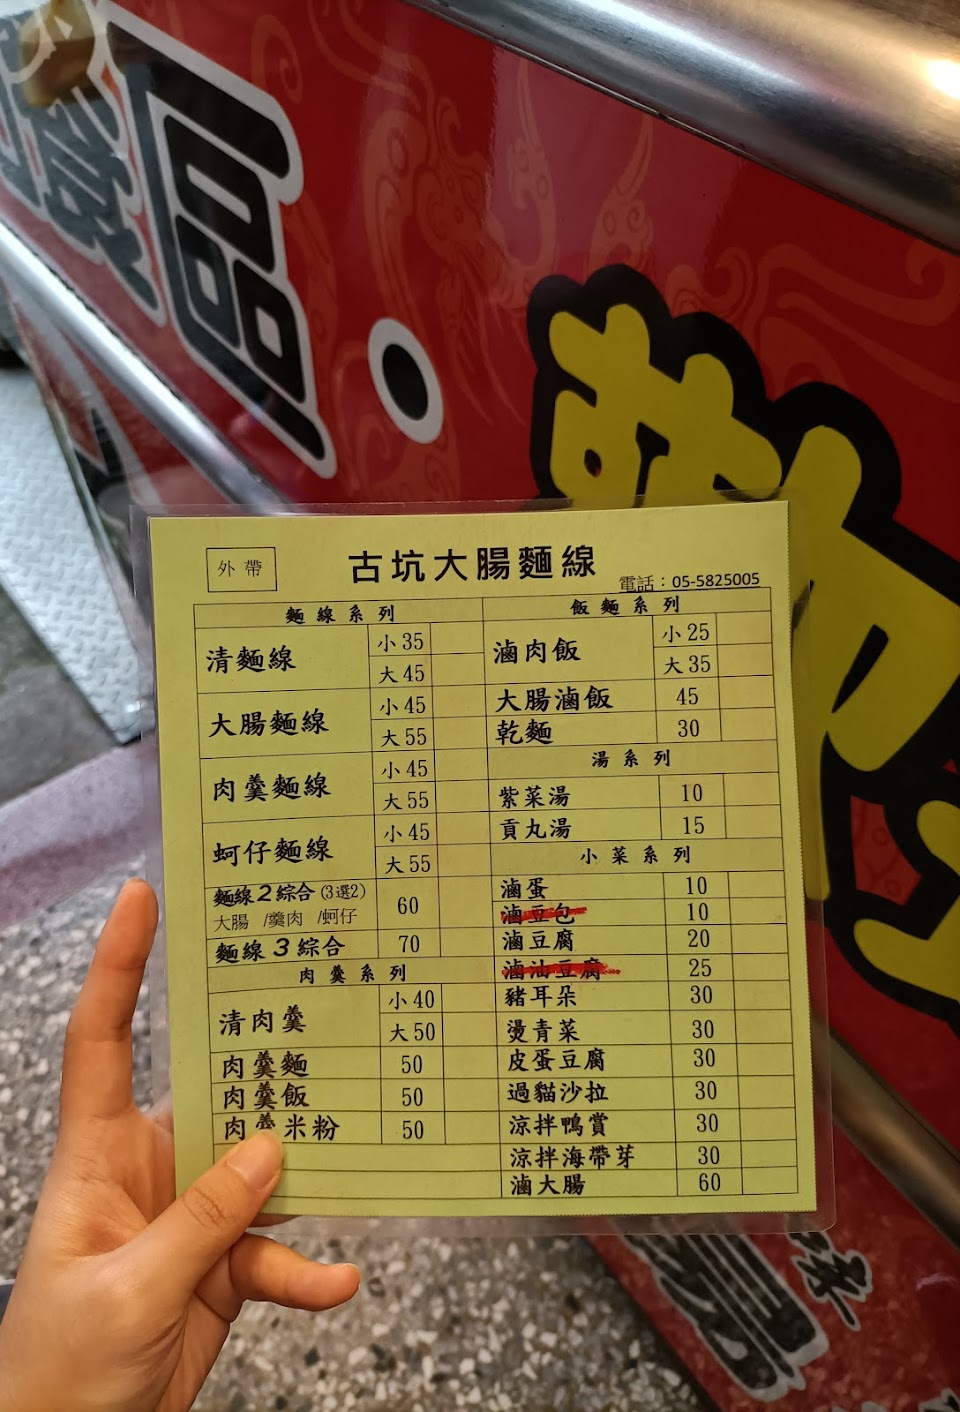 外帶
古坑大腸麵線
電話：05-5825005
麵線系列
清麵線 小35
大45
大腸麵線 小45
大55
肉羹麵線 小45
大55
蚵仔麵線 小45
大55
麵線2綜合(3選2) 60
大腸 /羹肉 /蚵仔
麵線3綜合 70
肉羹系列
清肉羹 小40
大50
肉羹麵 50
肉羹飯 50
肉羹米粉 50
飯麵系列
滷肉飯 小25
大35
大腸滷飯 45
乾麵 30
湯系列
紫菜湯 10
貢丸湯 15
小菜系列
滷蛋 10
滷豆包 10
滷豆腐 20
滷油豆腐 25
豬耳朵 30
燙青菜 30
皮蛋豆腐 30
過貓沙拉 30
涼拌鴨賞 30
涼拌海帶芽 30
滷大腸 60